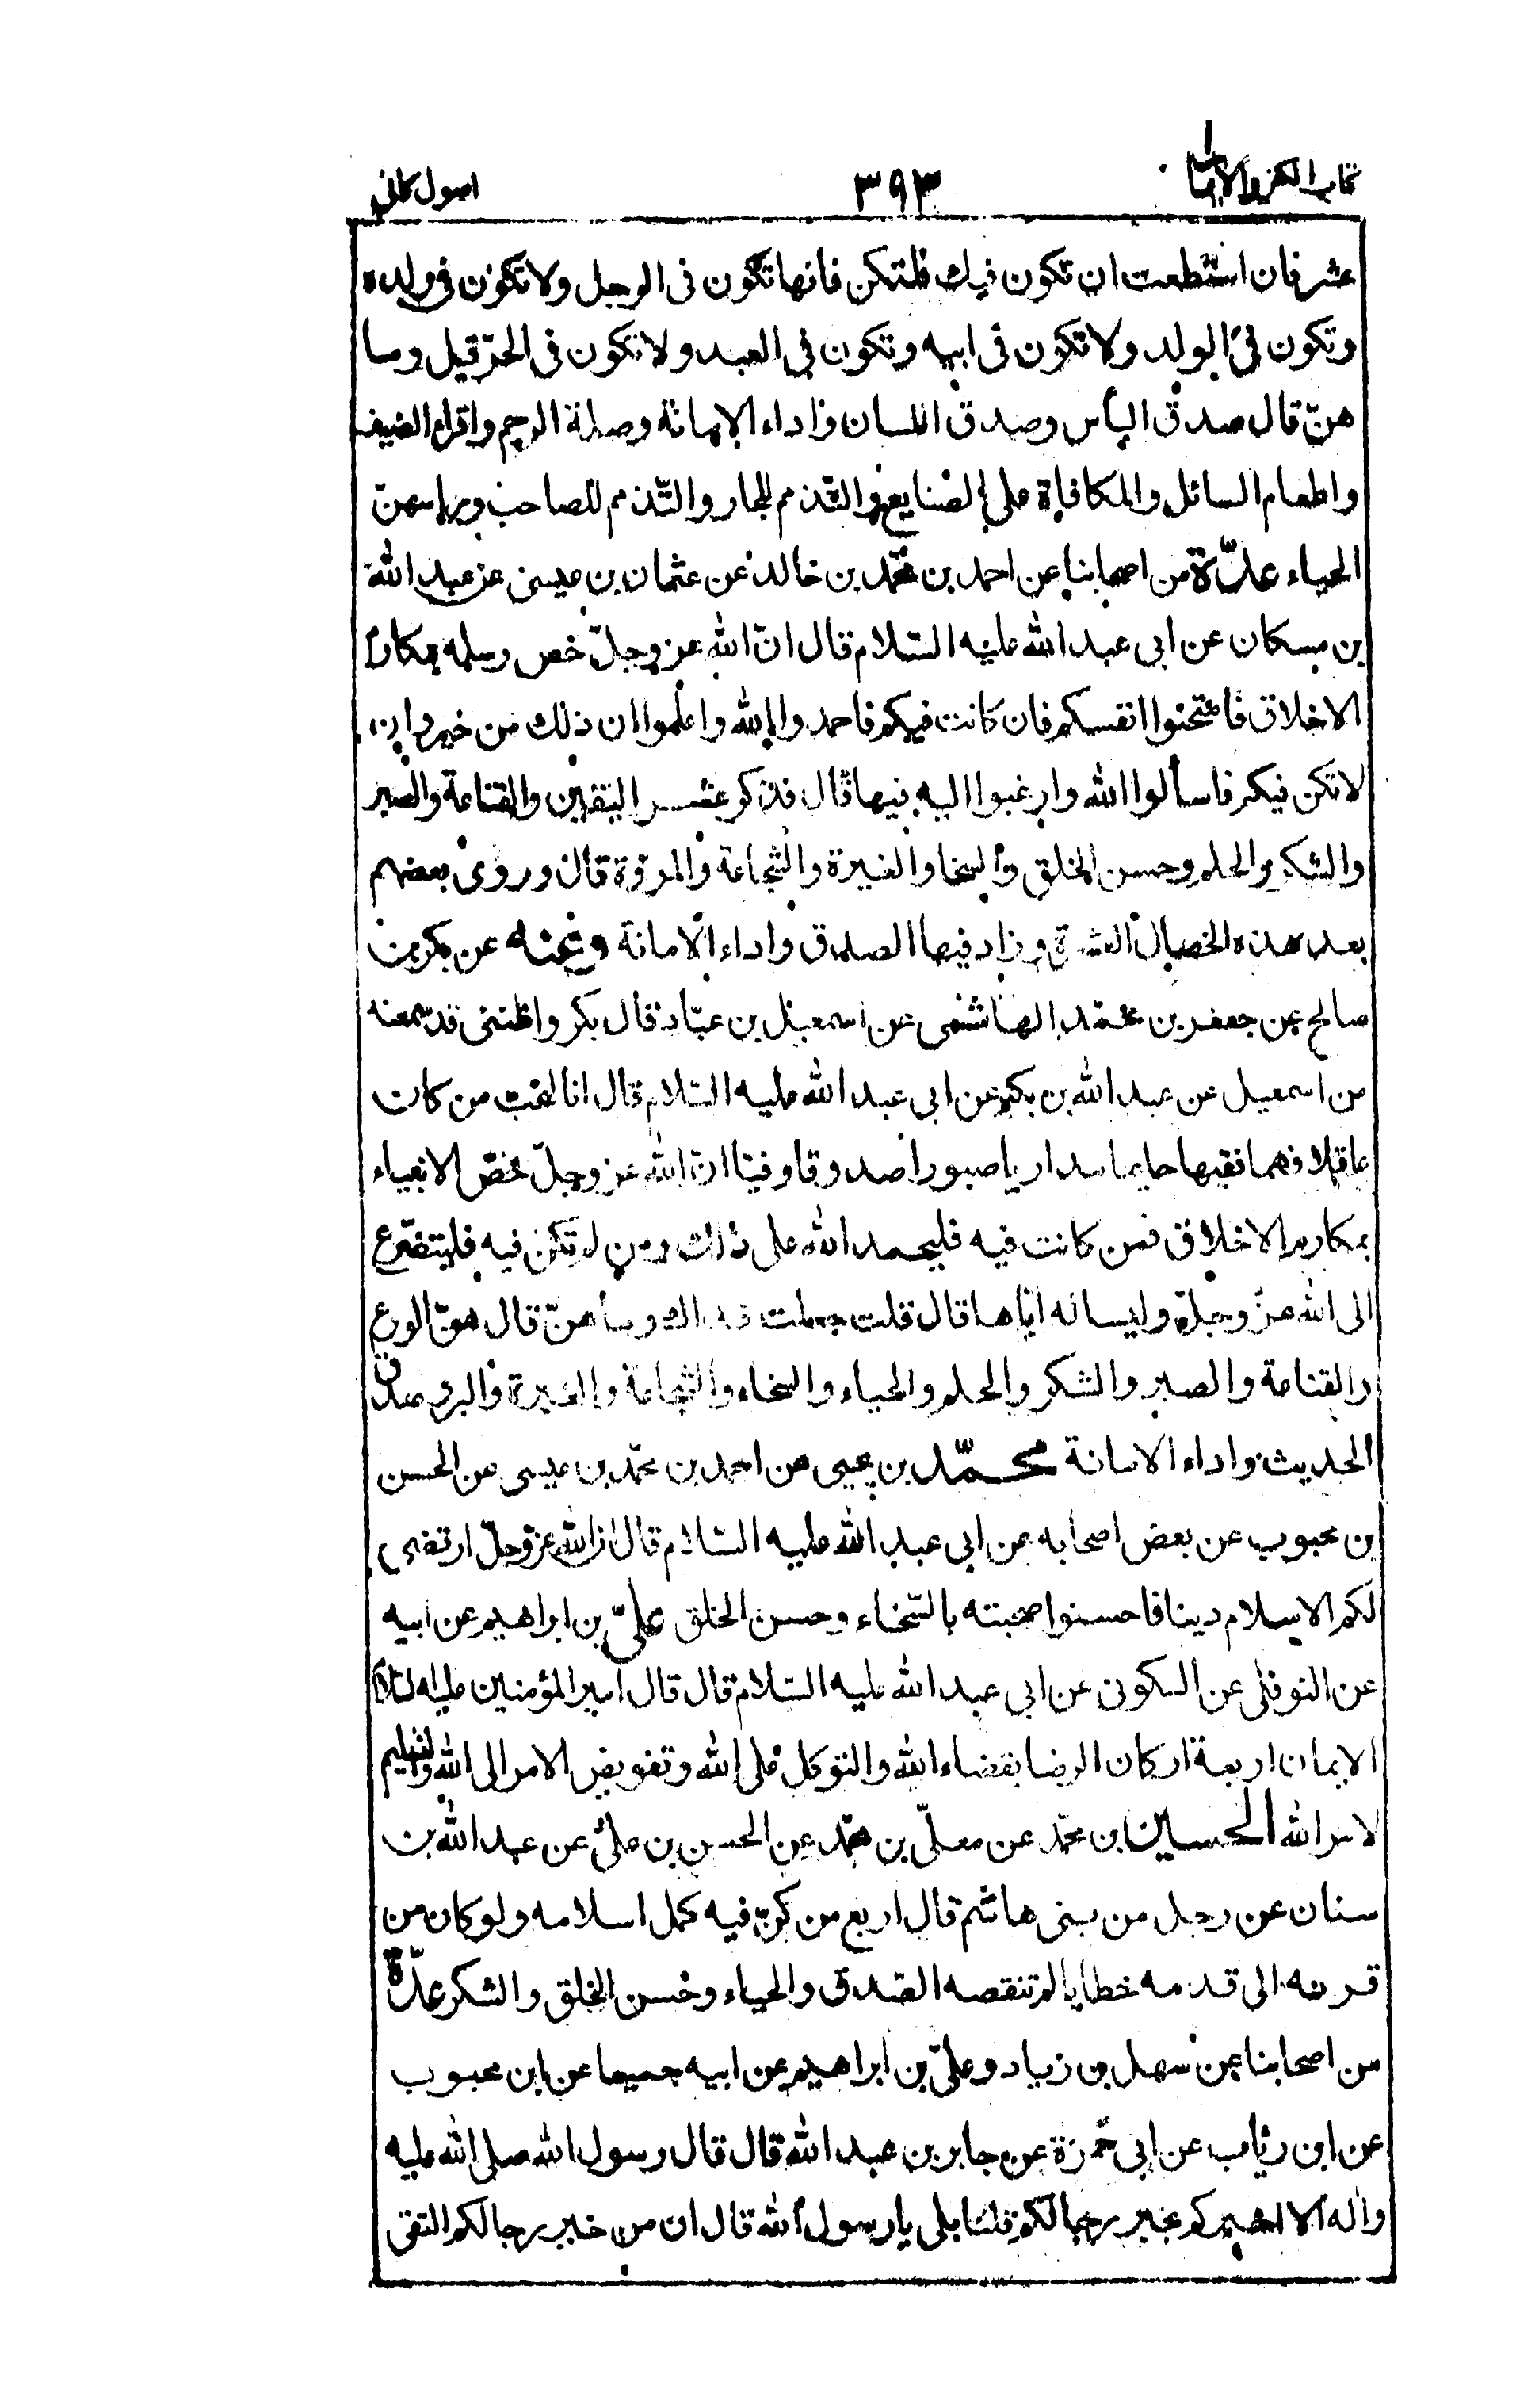 كتاب الكفر والايمان ٣٩٣ اصول كافى
عشر فان استطعت ان تكون فيك فلتكن فانها تكون فى الرجل ولا تكون فى ولده
وتكون فى الولد ولا تكون فى ابيه وتكون فى العبد ولا تكون فى الحرّ قيل وما
هنّ قال صدق البأس وصدق اللسان واداء الامانة وصلة الرحم واقراء الضيف
واطعام السائل والمكافاة على الصنايع والتّذمم للجار والتّذمم للصاحب وراسهنّ
الحياء عدّة من اصحابنا عن احمد بن محمّد بن خالد عن عثمان بن عيسى عن عبد الله
بن مسكان عن ابى عبد الله عليه السّلام قال انّ الله عز وجلّ خص رسله بمكارم
الاخلاق فامتحنوا انفسكم فان كانت فيكم فاحمدوا الله واعلموا ان ذلك من خير وان
لا تكن فيكم فاسألوا الله وارغبوا اليه فيها قال فذكر عشر اليقين والقناعة والصبر
والشكر والحلم وحسن الخلق والسخا والغيرة والشجاعة والمروّة قال وروى بعضهم
بعد هذه الخصال العشرة وزاد فيها الصدق واداء الامانة وعنه عن بكر بن
صالح عن جعفر بن محمّد الهاشمى عن اسمعيل بن عبّاد قال بكر واظننى قد سمعته
من اسمعيل عن عبد الله بن بكير عن ابى عبد الله عليه السّلام قال انا لنحب من كان
عاقلا فهما فقيها حليما مداريا صبورا صدوقا وفيّا ان الله عز وجلّ خصّ الانبياء
بمكارم الاخلاق فمن كانت فيه فليحمد الله على ذلك ومن لم تكن فيه فليتضرّع
الى الله عزّ وجلّ وليسأله ايّاها قال قلت جعلت فداك وما هنّ قال هنّ الورع
والقناعة والصبر والشكر والحلم والحياء والسخاء والشجاعة والغيرة والبر وصدق
الحديث واداء الامانة محمّد بن يحيى عن احمد بن محمّد بن عيسى عن الحسن
بن محبوب عن بعض اصحابه عن ابى عبد الله عليه السّلام قال ان الله عزّ وجلّ ارتضى
لكم الاسلام دينا فاحسنوا صحبته بالسّخاء وحسن الخلق علىّ بن ابراهيم عن ابيه
عن النوفلى عن السكونى عن ابى عبد الله عليه السّلام قال قال امير المؤمنين عليه السّلام
الايمان اربعة اركان الرضا بقضاء الله والتوكل على الله وتفويض الامر الى الله والتسليم
لامر الله الحسين بن محمّد عن معلّى بن محمّد عن الحسن بن علىّ عن عبد الله بن
سنان عن رجل من بنى هاشم قال اربع من كنّ فيه كمل اسلامه ولو كان من
قرنه الى قدمه خطايا لم تنقصه الصّدق والحياء وحسن الخلق والشكر عدّة
من اصحابنا عن سهل بن زياد وعلىّ بن ابراهيم عن ابيه جميعا عن ابن محبوب
عن ابن رئاب عن ابى حمزة عن جابر بن عبد الله قال قال رسول الله صلى الله عليه
واله الا اخبركم بخير رجالكم قلنا بلى يا رسول الله قال ان من خير رجالكم التقى